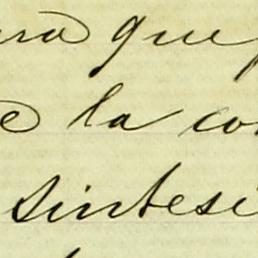 ara que
e la co
sintesi